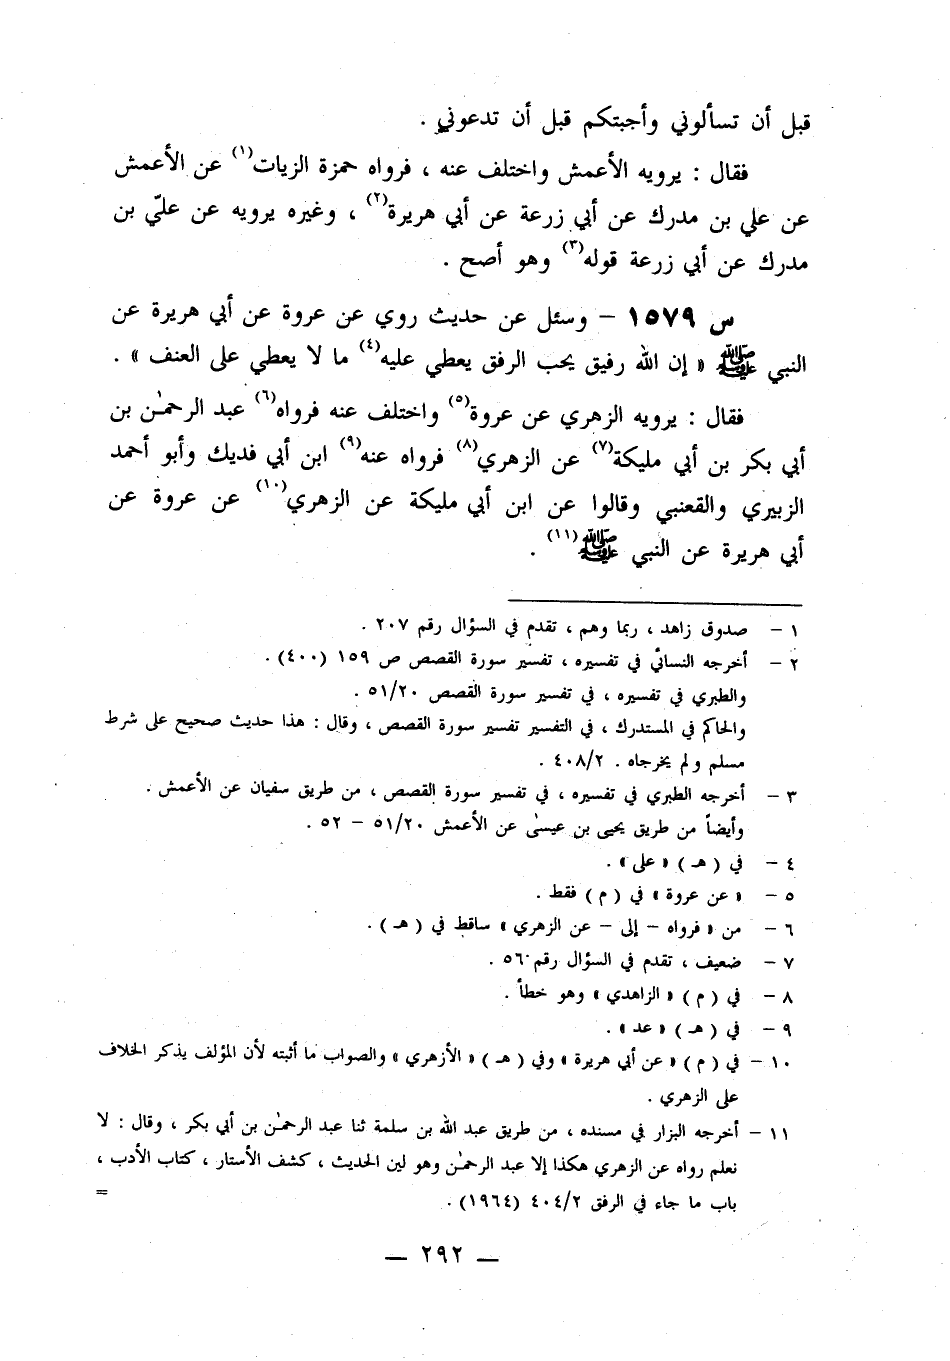 قبل أن تسألوني وأجبتكم قبل أن تدعوني .
فقال : يرويه الأعمش واختلف عنه ، فرواه حمزة الزيات(١) عن الأعمش
عن علي بن مدرك عن أبي زرعة عن أبي هريرة(٢) ، وغيره يرويه عن عليّ بن
مدرك عن أبي زرعة قوله(٣) وهو أصح .
س ١٥٧٩ – وسئل عن حديث روي عن عروة عن أبي هريرة عن
النبي ﷺ « إن الله رفيق يحب الرفق يعطي عليه(٤) ما لا يعطي على العنف » .
فقال : يرويه الزهري عن عروة(٥) واختلف عنه فرواه(٦) عبد الرحمٰن بن
أبي بكر بن أبي مليكة(٧) عن الزهري(٨) فرواه عنه(٩) ابن أبي فديك وأبو أحمد
الزبيري والقعنبي وقالوا عن ابن أبي مليكة عن الزهري(١٠) عن عروة عن
أبي هريرة عن النبي ﷺ(١١) .
١ – صدوق زاهد ، ربما وهم ، تقدم في السؤال رقم ٢٠٧ .
٢ – أخرجه النسائي في تفسيره ، تفسير سورة القصص ص ١٥٩ (٤٠٠) .
والطبري في تفسيره ، في تفسير سورة القصص ٥١/٢٠ .
والحاكم في المستدرك ، في التفسير تفسير سورة القصص ، وقال : هذا حديث صحيح على شرط
مسلم ولم يخرجاه . ٤٠٨/٢ .
٣ – أخرجه الطبري في تفسيره ، في تفسير سورة القصص ، من طريق سفيان عن الأعمش .
وأيضاً من طريق يحيى بن عيسىٰ عن الأعمش ٥١/٢٠ – ٥٢ .
٤ – في ( هـ ) « على » .
٥ – « عن عروة » في ( م ) فقط .
٦ – من « فرواه – إلى – عن الزهري » ساقط في ( هـ ) .
٧ – ضعيف ، تقدم في السؤال رقم ٥٦٠ .
٨ – في ( م ) « الزاهدي » وهو خطأ .
٩ – في ( هـ ) « عد » .
١٠ – في ( م ) « عن أبي هريرة » وفي ( هـ ) « الأزهري » والصواب ما أثبته لأن المؤلف يذكر الخلاف
على الزهري .
١١ – أخرجه البزار في مسنده ، من طريق عبد الله بن سلمة ثنا عبد الرحمٰن بن أبي بكر ، وقال : لا
نعلم رواه عن الزهري هكذا إلا عبد الرحمٰن وهو لين الحديث ، كشف الأستار ، كتاب الأدب ،
باب ما جاء في الرفق ٤٠٤/٢ (١٩٦٤) . =
— ٢٩٢ —